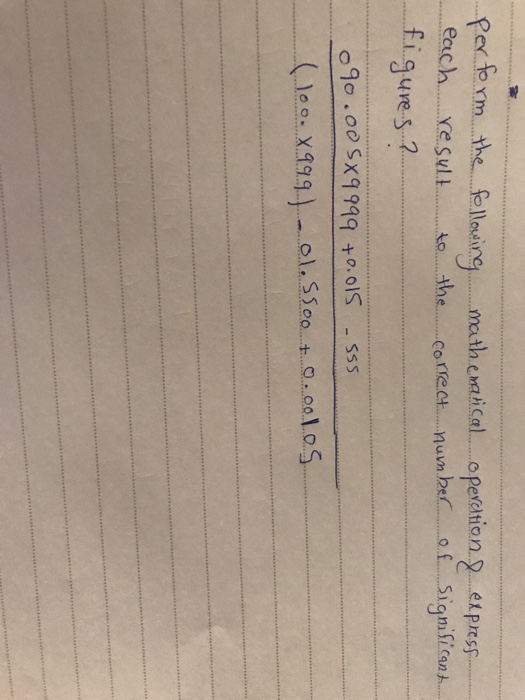 Perform the following mathematical operation & express
each result to the correct number of significant
figures?
090.005x9999 + 0.015 - 555
(100. x 999) - 01.5500 + 0.00105